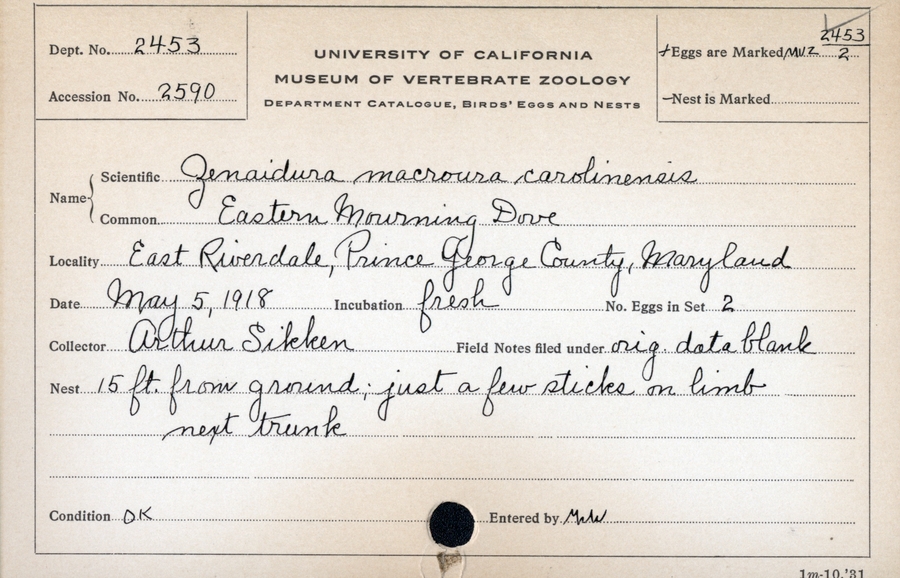 Dept. No. 2453
Accession No. 2590
UNIVERSITY OF CALIFORNIA
MUSEUM OF VERTEBRATE ZOOLOGY
DEPARTMENT CATALOGUE, BIRDS' EGGS AND NESTS
+Eggs are Marked MVZ 2453/2
—Nest is Marked
Name { Scientific Zenaidura macroura carolinensis
Common Eastern Mourning Dove
Locality East Riverdale, Prince George County, Maryland
Date May 5, 1918 Incubation fresh No. Eggs in Set 2
Collector Arthur Sikken Field Notes filed under orig. data blank
Nest 15 ft. from ground; just a few sticks on limb
next trunk
Condition OK Entered by
1m-10,'31